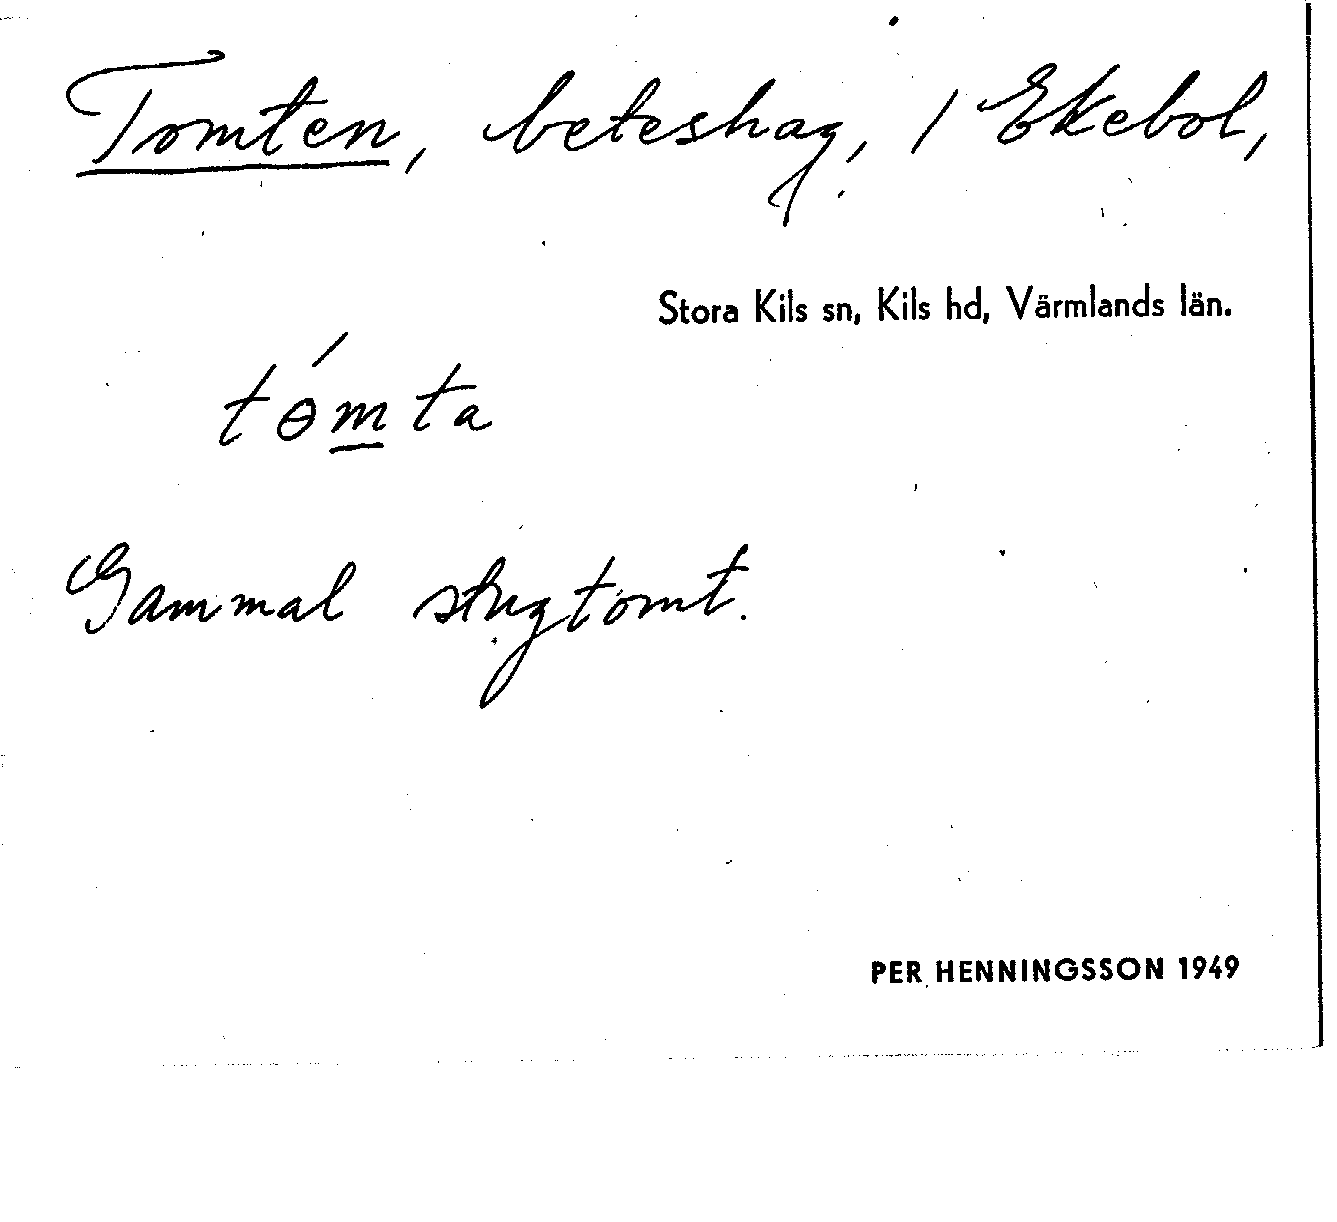 Tomten, beteshag, 1 Ekebol,
Stora Kils sn, Kils hd, Värmlands län.
tɵ́m̲ta
Gammal stugtomt.
PER HENNINGSSON 1949